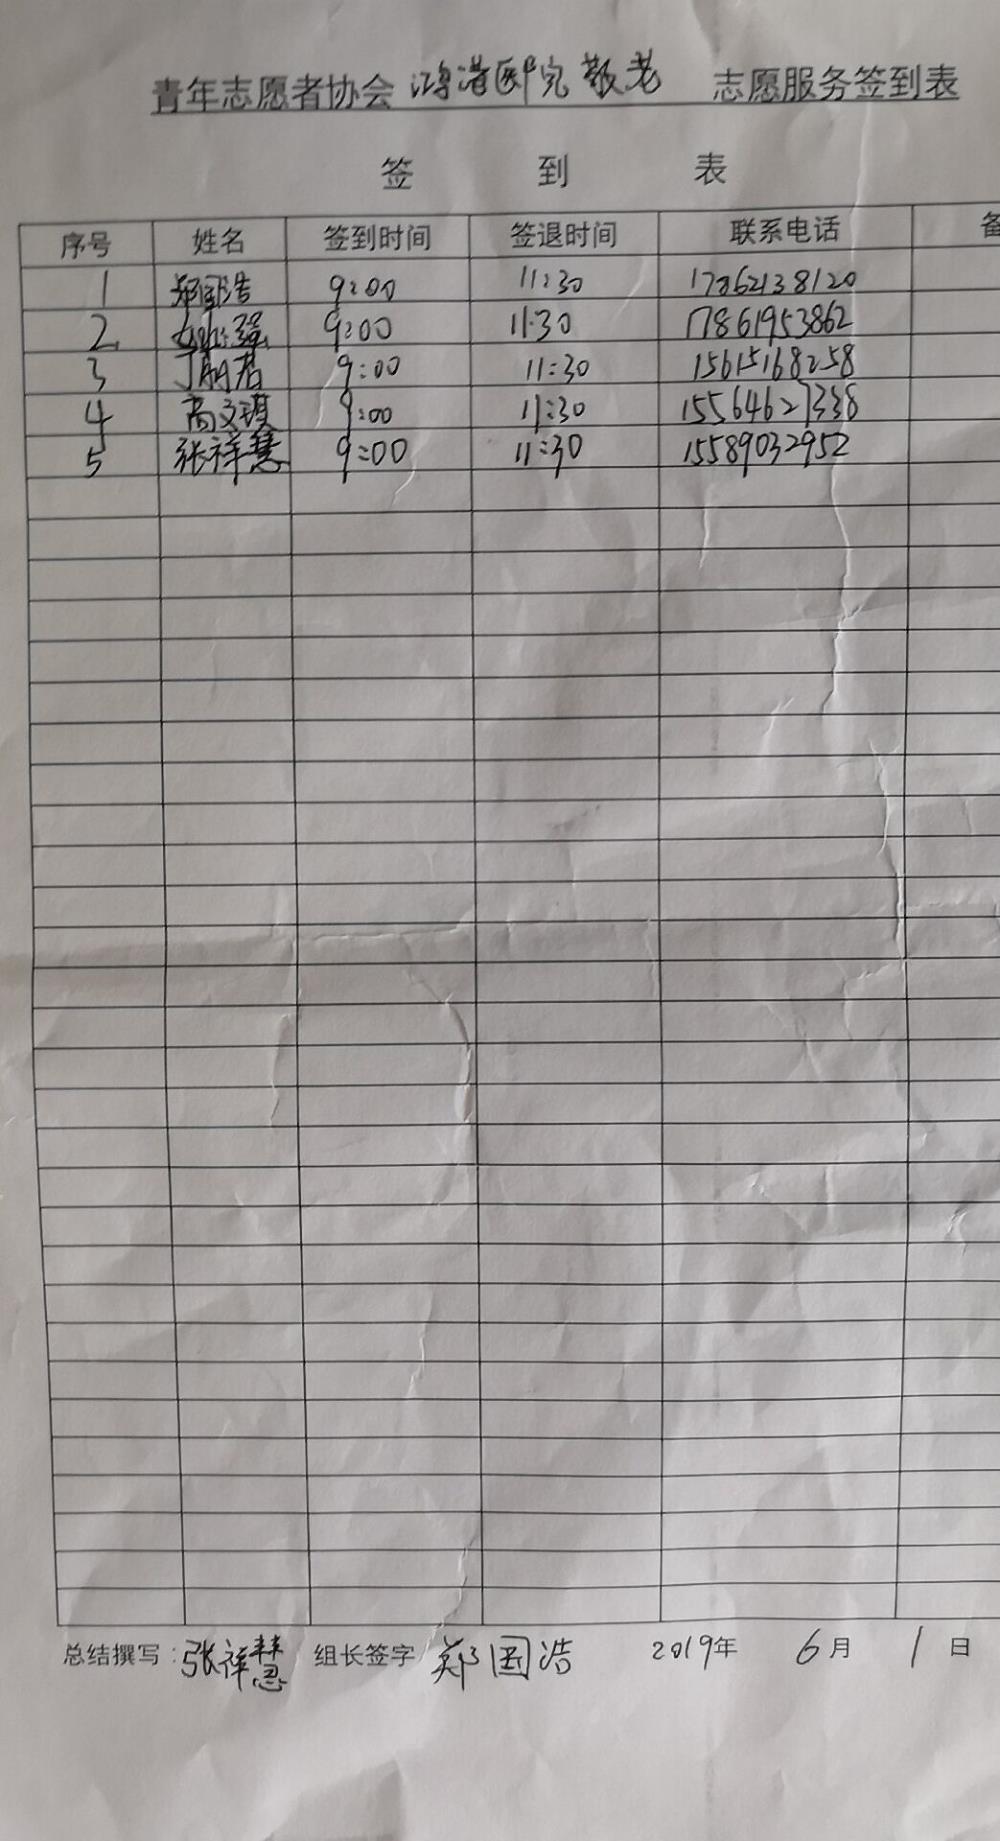 青年志愿者协会 鸿港医院敬老 志愿服务签到表
签 到 表
序号 姓名 签到时间 签退时间 联系电话 备
1 郑国浩 9:00 11:30 17862138120
2 强 9:00 11:30 17861953862
3 丁 君 9:00 11:30 15615168258
4 高文琪 9:00 11:30 15564627338
5 张祥慧 9:00 11:30 15589032952
总结撰写:张祥慧 组长签字 郑国浩 2019年 6月 1日